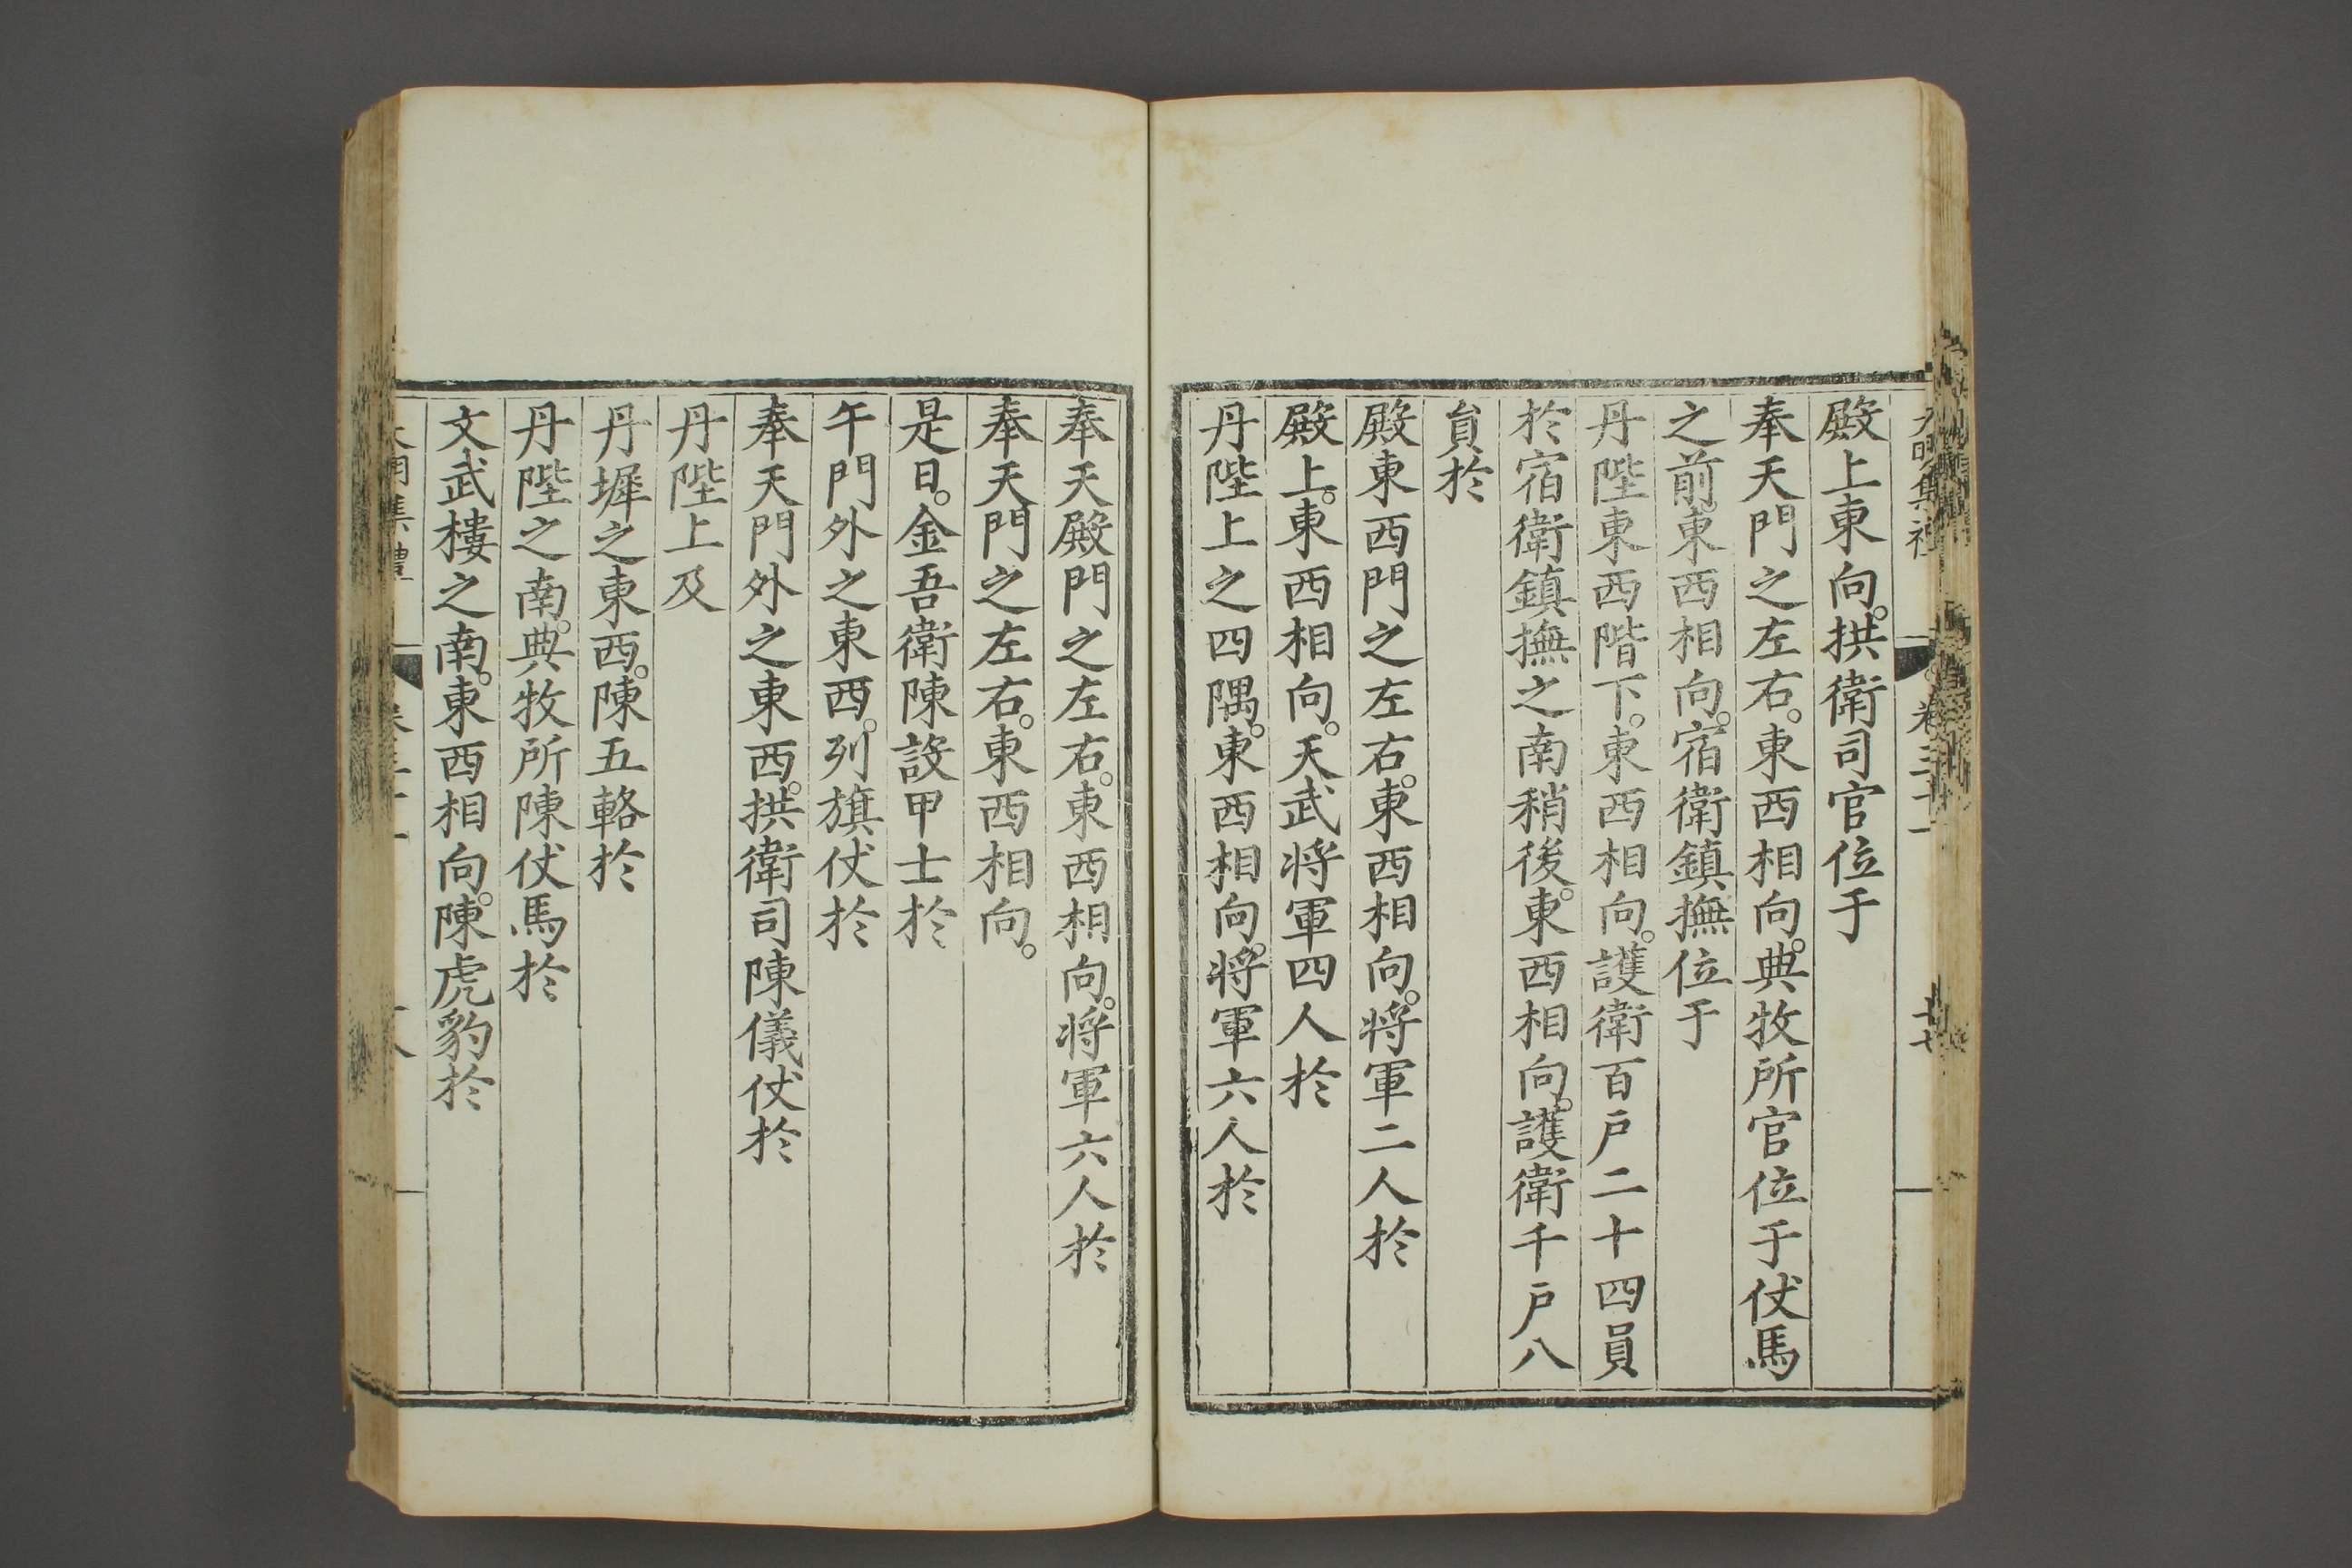 殿上東向。拱衛司官位于
奉天門之左右。東西相向。典牧所官位于仗馬
之前。東西相向。宿衛鎮撫位于
丹陛東西階下。東西相向。護衛百戶二十四員
於宿衛鎮撫之南稍後。東西相向。護衛千戶八
貟於
殿東西門之左右。東西相向。將軍二人於
殿上。東西相向。天武將軍四人於
丹陛上之四隅。東西相向。將軍六人於
奉天殿門之左右。東西相向。將軍六人於
奉天門之左右。東西相向。
是日。金吾衛陳設甲士於
午門外之東西。列旗仗於
奉天門外之東西。拱衛司陳儀仗於
丹陛上及
丹墀之東西。陳五輅於
丹陛之南。典牧所陳仗馬於
文武樓之南。東西相向。陳虎豹於